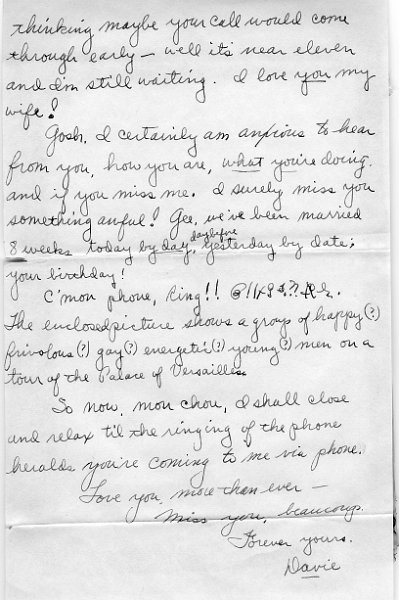 thinking maybe your call would come
through early — well it's near eleven
and I'm still waiting. I love you my
wife!
Gosh, I certainly am anxious to hear
from you, how you are, what you're doing.
and if you miss me. I surely miss you
something awful! Gee, we've been married
8 weeks today by day, day before yesterday by date;
your birthday!
C'mon phone, Ring!!
The enclosed picture shows a group of happy(?)
frivolous(?) gay(?) energetic(?) young(?) men on a
tour of the Palace of Versailles.
So now, mon chou, I shall close
and relax til the ringing of the phone
heralds you're coming to me via phone.
Love you, more than ever —
Miss you, beaucoup.
Forever yours.
Davie